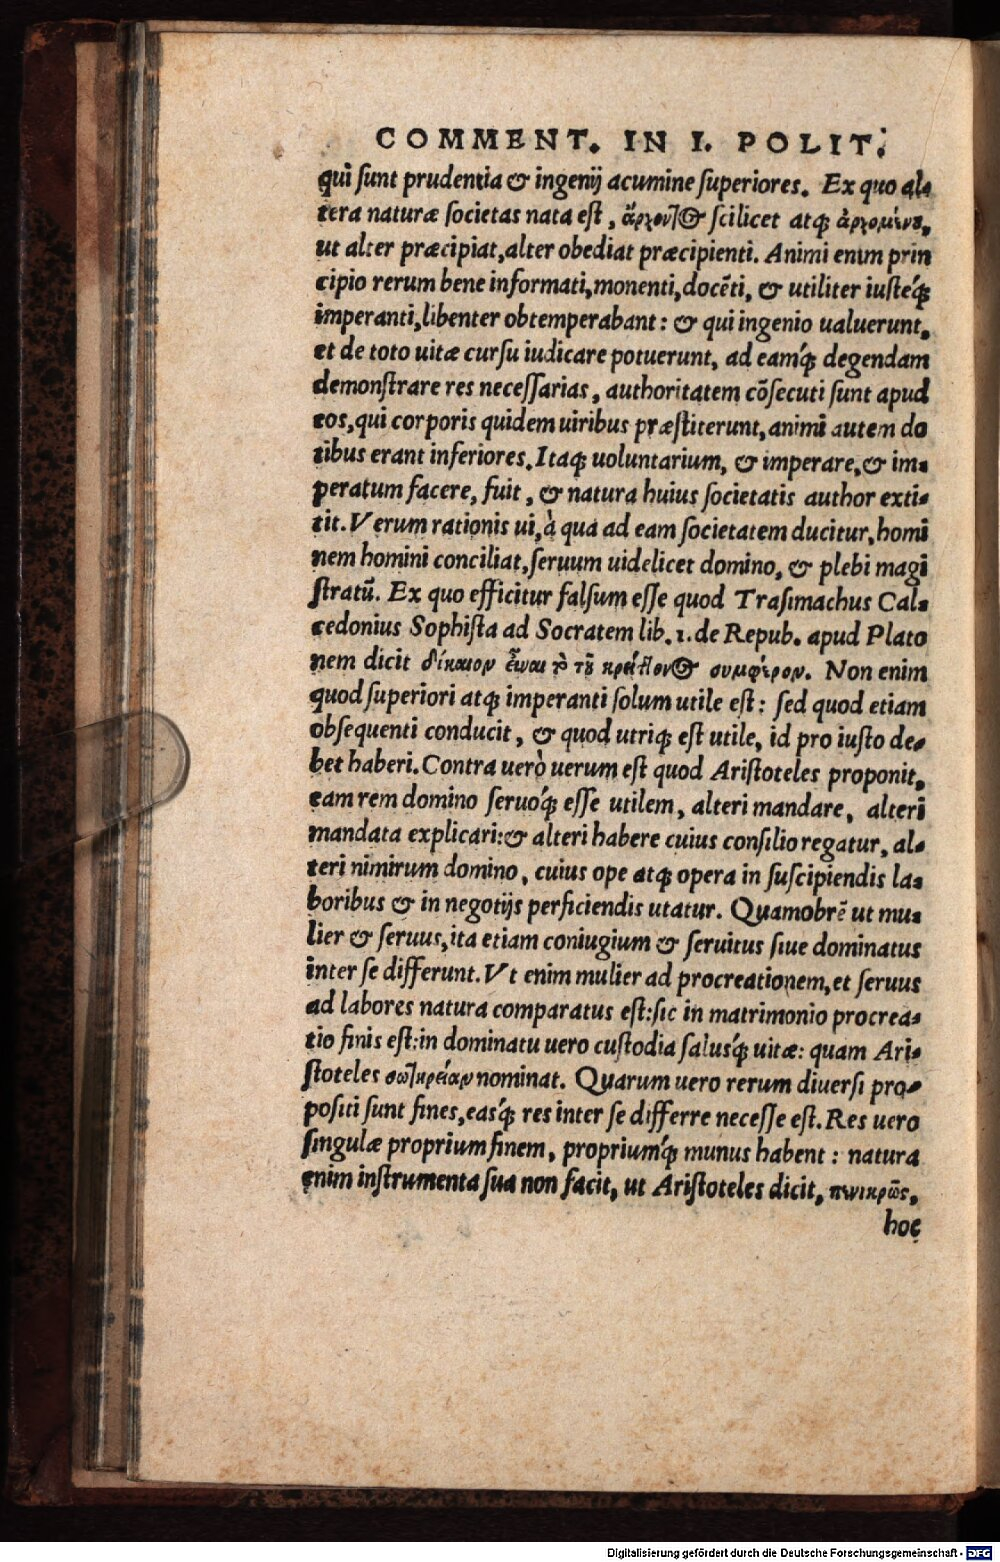 COMMENT. IN I. POLIT.
qui ſunt prudentia & ingenij acumine ſuperiores. Ex quo al-
tera naturæ ſocietas nata eſt, ἄρχοντος ſcilicet atq; ἀρχομένου,
ut alter præcipiat, alter obediat præcipienti. Animi enim prin
cipio rerum bene informati, monenti, docēti, & utiliter iuſteq́;
imperanti, libenter obtemperabant: & qui ingenio ualuerunt,
et de toto uitæ curſu iudicare potuerunt, ad eamq́; degendam
demonſtrare res neceſſarias, authoritatem cōſecuti ſunt apud
eos, qui corporis quidem uiribus præſtiterunt, animi autem do
tibus erant inferiores. Itaq; uoluntarium, & imperare, & im-
peratum facere, fuit, & natura huius ſocietatis author exti-
tit. Verum rationis ui, à qua ad eam ſocietatem ducitur, homi
nem homini conciliat, ſeruum uidelicet domino, & plebi magi
ſtratū. Ex quo efficitur falſum eſſe quod Traſimachus Cal-
cedonius Sophiſta ad Socratem lib. 1. de Repub. apud Plato
nem dicit δίκαιον εἶναι τὸ τοῦ κρείττονος συμφέρον. Non enim
quod ſuperiori atq; imperanti ſolum utile eſt: ſed quod etiam
obſequenti conducit, & quod utriq; eſt utile, id pro iuſto de-
bet haberi. Contra uerò uerum eſt quod Ariſtoteles proponit,
eam rem domino ſeruoq́; eſſe utilem, alteri mandare, alteri
mandata explicari: & alteri habere cuius conſilio regatur, al-
teri nimirum domino, cuius ope atq; opera in ſuſcipiendis la-
boribus & in negotijs perficiendis utatur. Quamobrē ut mu-
lier & ſeruus, ita etiam coniugium & ſeruitus ſiue dominatus
inter ſe differunt. Vt enim mulier ad procreationem, et ſeruus
ad labores natura comparatus eſt: ſic in matrimonio procrea-
tio finis eſt: in dominatu uero cuſtodia ſalusq́; uitæ: quam Ari-
ſtoteles σωτηρίαν nominat. Quarum uero rerum diuerſi pro-
poſiti ſunt fines, easq́; res inter ſe differre neceſſe eſt. Res uero
ſingulæ proprium finem, propriumq́; munus habent: natura
enim inſtrumenta ſua non facit, ut Ariſtoteles dicit, πενιχρῶς,
hoc
Digitalisierung gefördert durch die Deutsche Forschungsgemeinschaft - DFG